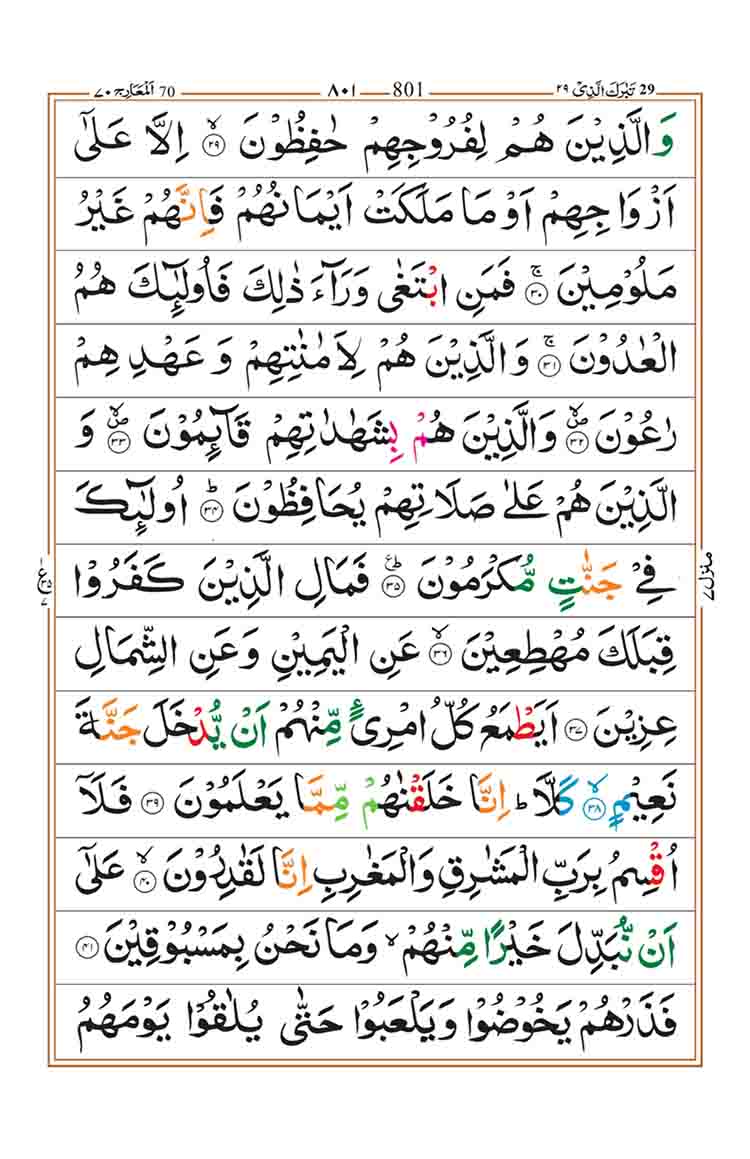 29 تَبٰرَكَ الَّذِیْ ٢٩ 801 ٨٠١ 70 اَلْمَعَارِج ٧٠
وَالَّذِیْنَ هُمْ لِفُرُوْجِهِمْ حٰفِظُوْنَ ۙ‏﴿۲۹﴾ اِلَّا عَلٰۤی
اَزْوَاجِهِمْ اَوْ مَا مَلَكَتْ اَیْمَانُهُمْ فَاِنَّهُمْ غَیْرُ
مَلُوْمِیْنَ ۚ‏﴿۳۰﴾ فَمَنِ ابْتَغٰی وَرَآءَ ذٰلِكَ فَاُولٰٓئِكَ هُمُ
الْعٰدُوْنَ ۚ‏﴿۳۱﴾ وَالَّذِیْنَ هُمْ لِاَمٰنٰتِهِمْ وَ عَهْدِهِمْ
رٰعُوْنَ ۪ۙ‏﴿۳۲﴾ وَالَّذِیْنَ هُمْ بِشَهٰدٰتِهِمْ قَآىِٕمُوْنَ ۪ۙ‏﴿۳۳﴾ وَ
الَّذِیْنَ هُمْ عَلٰی صَلَاتِهِمْ یُحَافِظُوْنَ ؕ‏﴿۳۴﴾ اُولٰٓئِكَ
فِیْ جَنّٰتٍ مُّكْرَمُوْنَ ؕ‏﴿۳۵﴾ فَمَالِ الَّذِیْنَ كَفَرُوْا
قِبَلَكَ مُهْطِعِیْنَ ۙ‏﴿۳۶﴾ عَنِ الْیَمِیْنِ وَعَنِ الشِّمَالِ
عِزِیْنَ ﴿۳۷﴾ اَیَطْمَعُ كُلُّ امْرِئٍ مِّنْهُمْ اَنْ یُّدْخَلَ جَنَّةَ
نَعِیْمٍ ۙ‏﴿۳۸﴾ كَلَّا ؕ اِنَّا خَلَقْنٰهُمْ مِّمَّا یَعْلَمُوْنَ ﴿۳۹﴾ فَلَاۤ
اُقْسِمُ بِرَبِّ الْمَشٰرِقِ وَالْمَغٰرِبِ اِنَّا لَقٰدِرُوْنَ ۙ‏﴿۴۰﴾ عَلٰۤی
اَنْ نُّبَدِّلَ خَیْرًا مِّنْهُمْ ۙ وَمَا نَحْنُ بِمَسْبُوْقِیْنَ ﴿۴۱﴾
فَذَرْهُمْ یَخُوْضُوْا وَیَلْعَبُوْا حَتّٰی یُلٰقُوْا یَوْمَهُمُ
منزل ٧